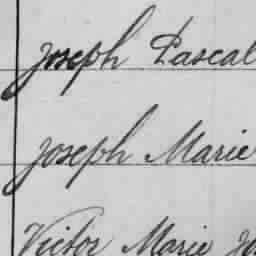 Joseph Pascal
Joseph Marie
Victor Marie Jo